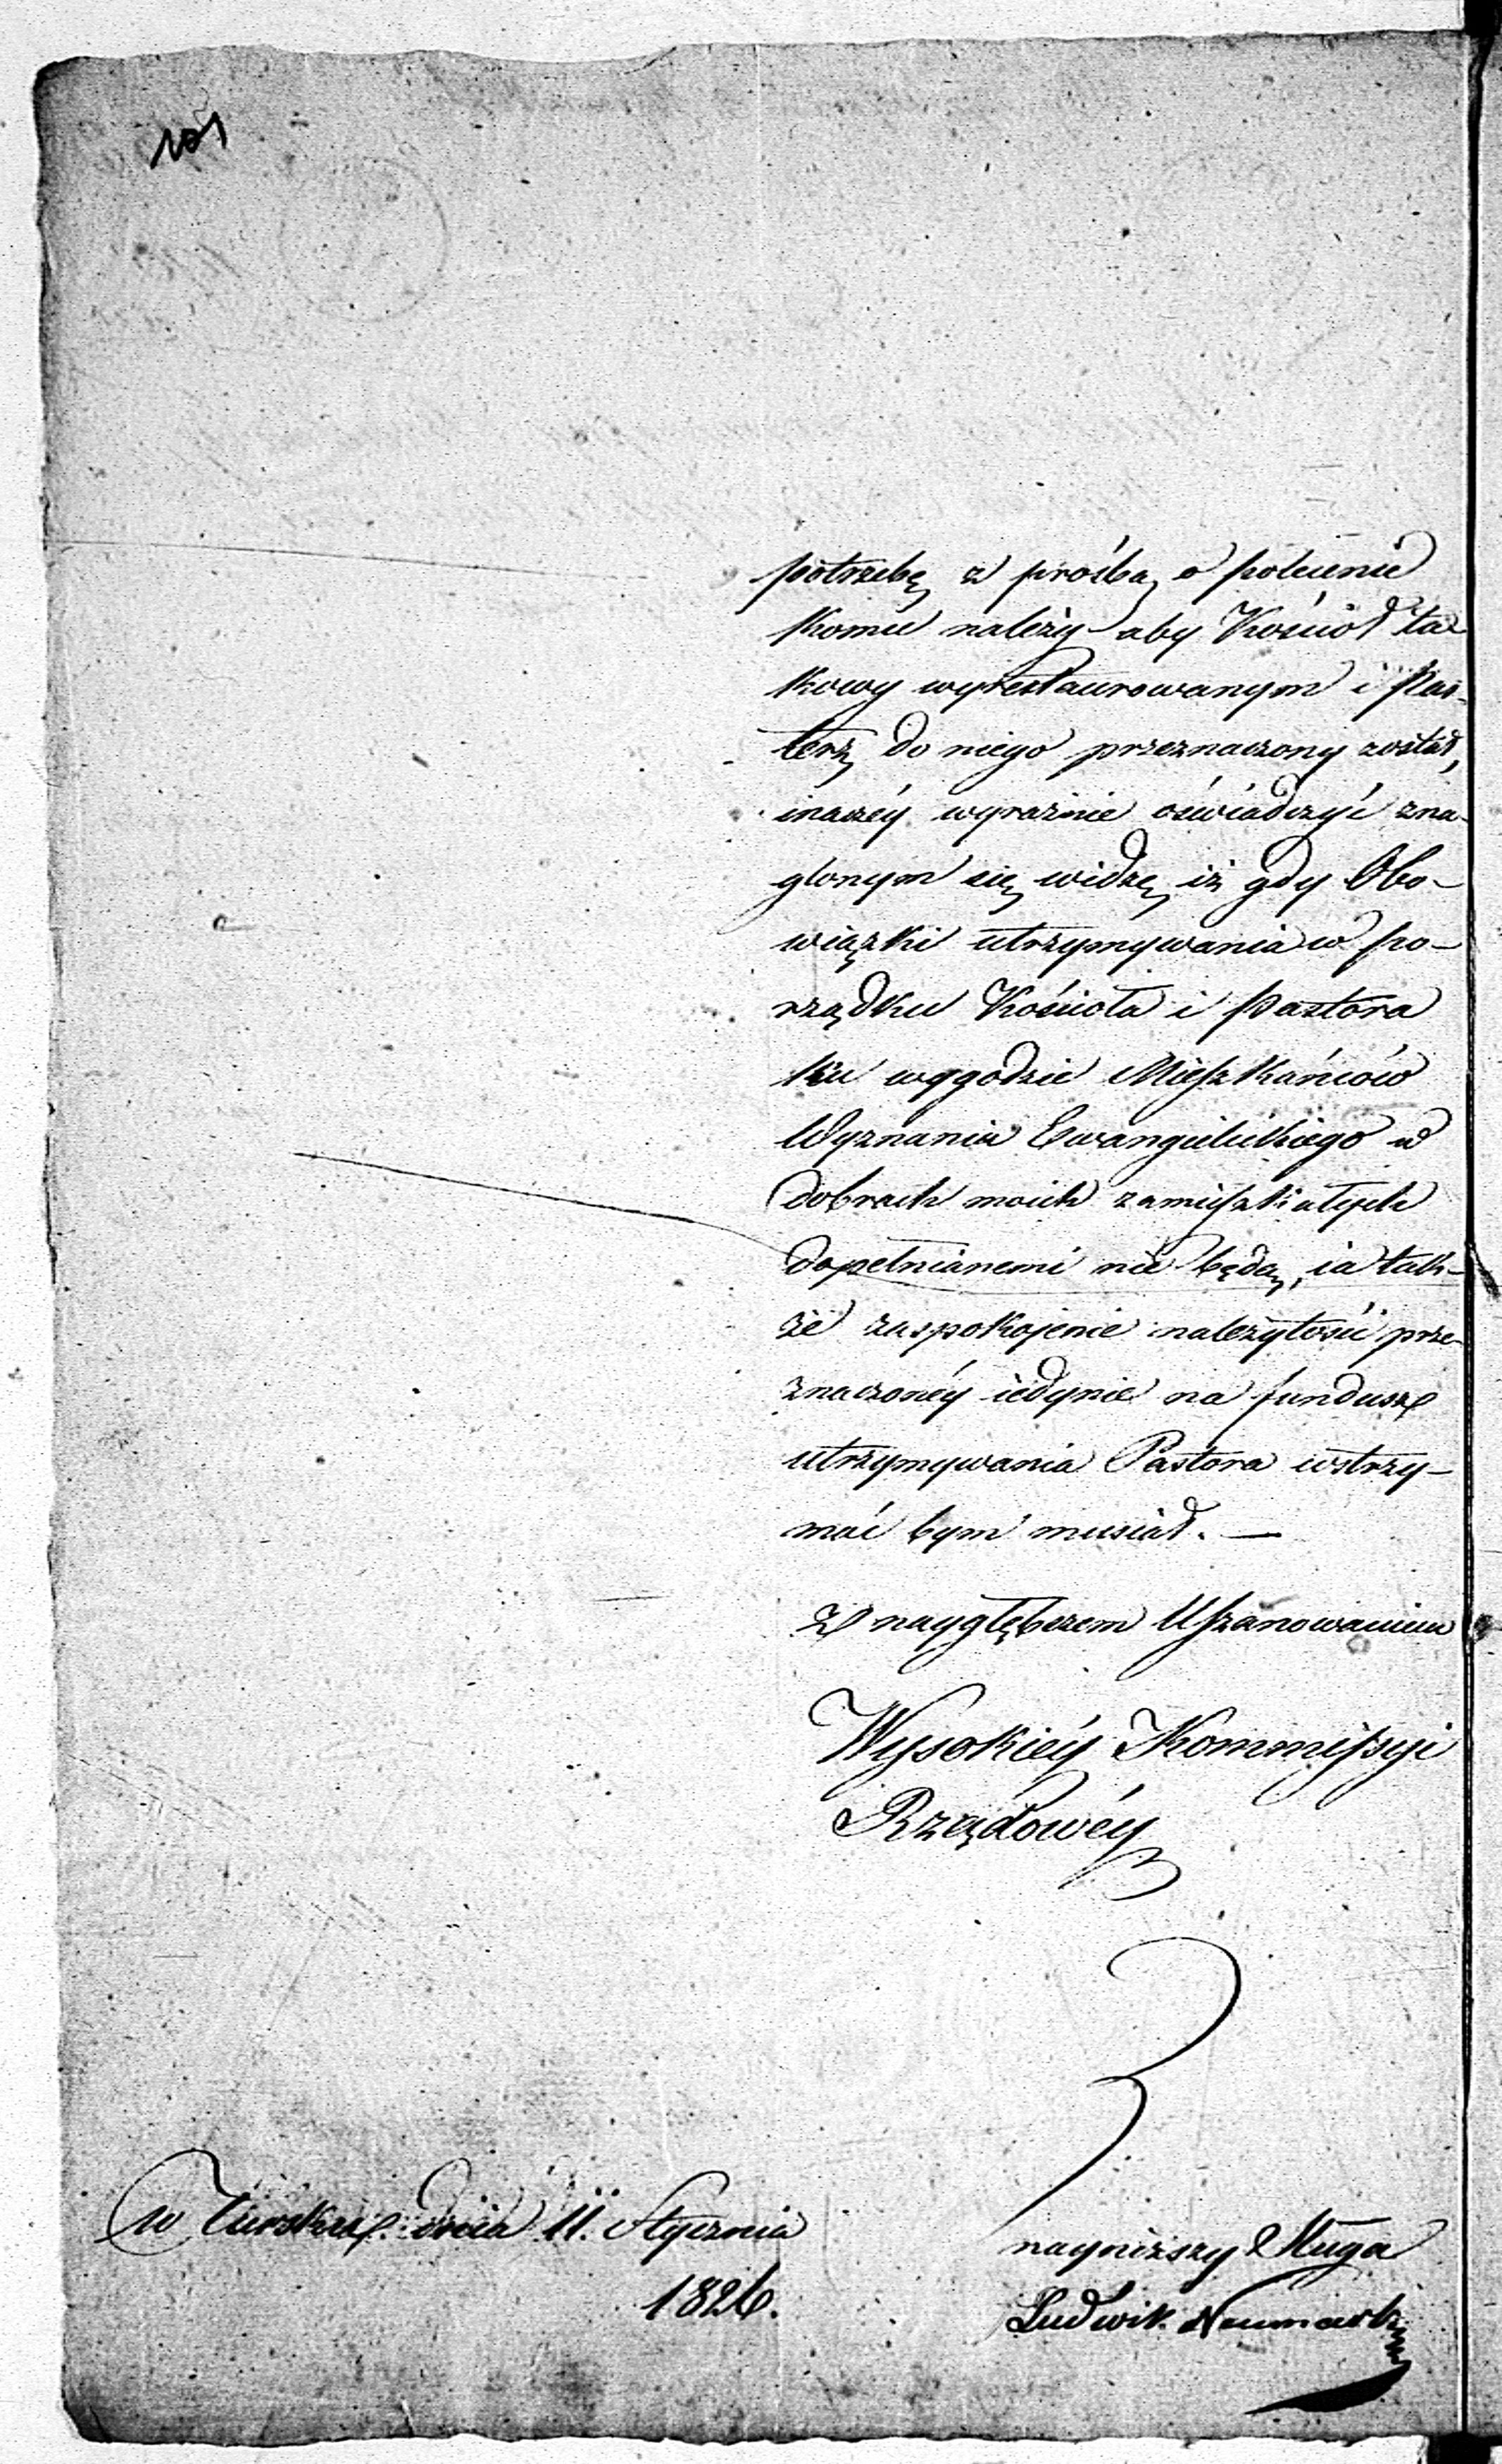 101
potrzebę z prośbą o polecenie
komu należy aby Kościoł ta
kowy wyrestaurowanym i Pas-
terz do niego przeznaczony został,
inaczéy wyraźnie oświadczyć zna-
glonym się widzę iż gdy Obo-
wiązki utrzymywania w po-
rządku Kościoła i Pastora
ku wygodzie Mieszkańców
Wyznania Ewangielickiego w
dobrach moich zamieszkałych
dopełnianemi nie będą, ia tak-
że zaspokojenie należytości prze-
znaczonéy iedynie na fundusz
utrzymywania Pastora wstrzy-
mać bym musiał. —
Z naygłębszem Uszanowaniem
Wysokiéy Kommissyi
Rządowéy
w Tursku dnia 11. Stycznia
1826.
nayniższy Sługa
Ludwik